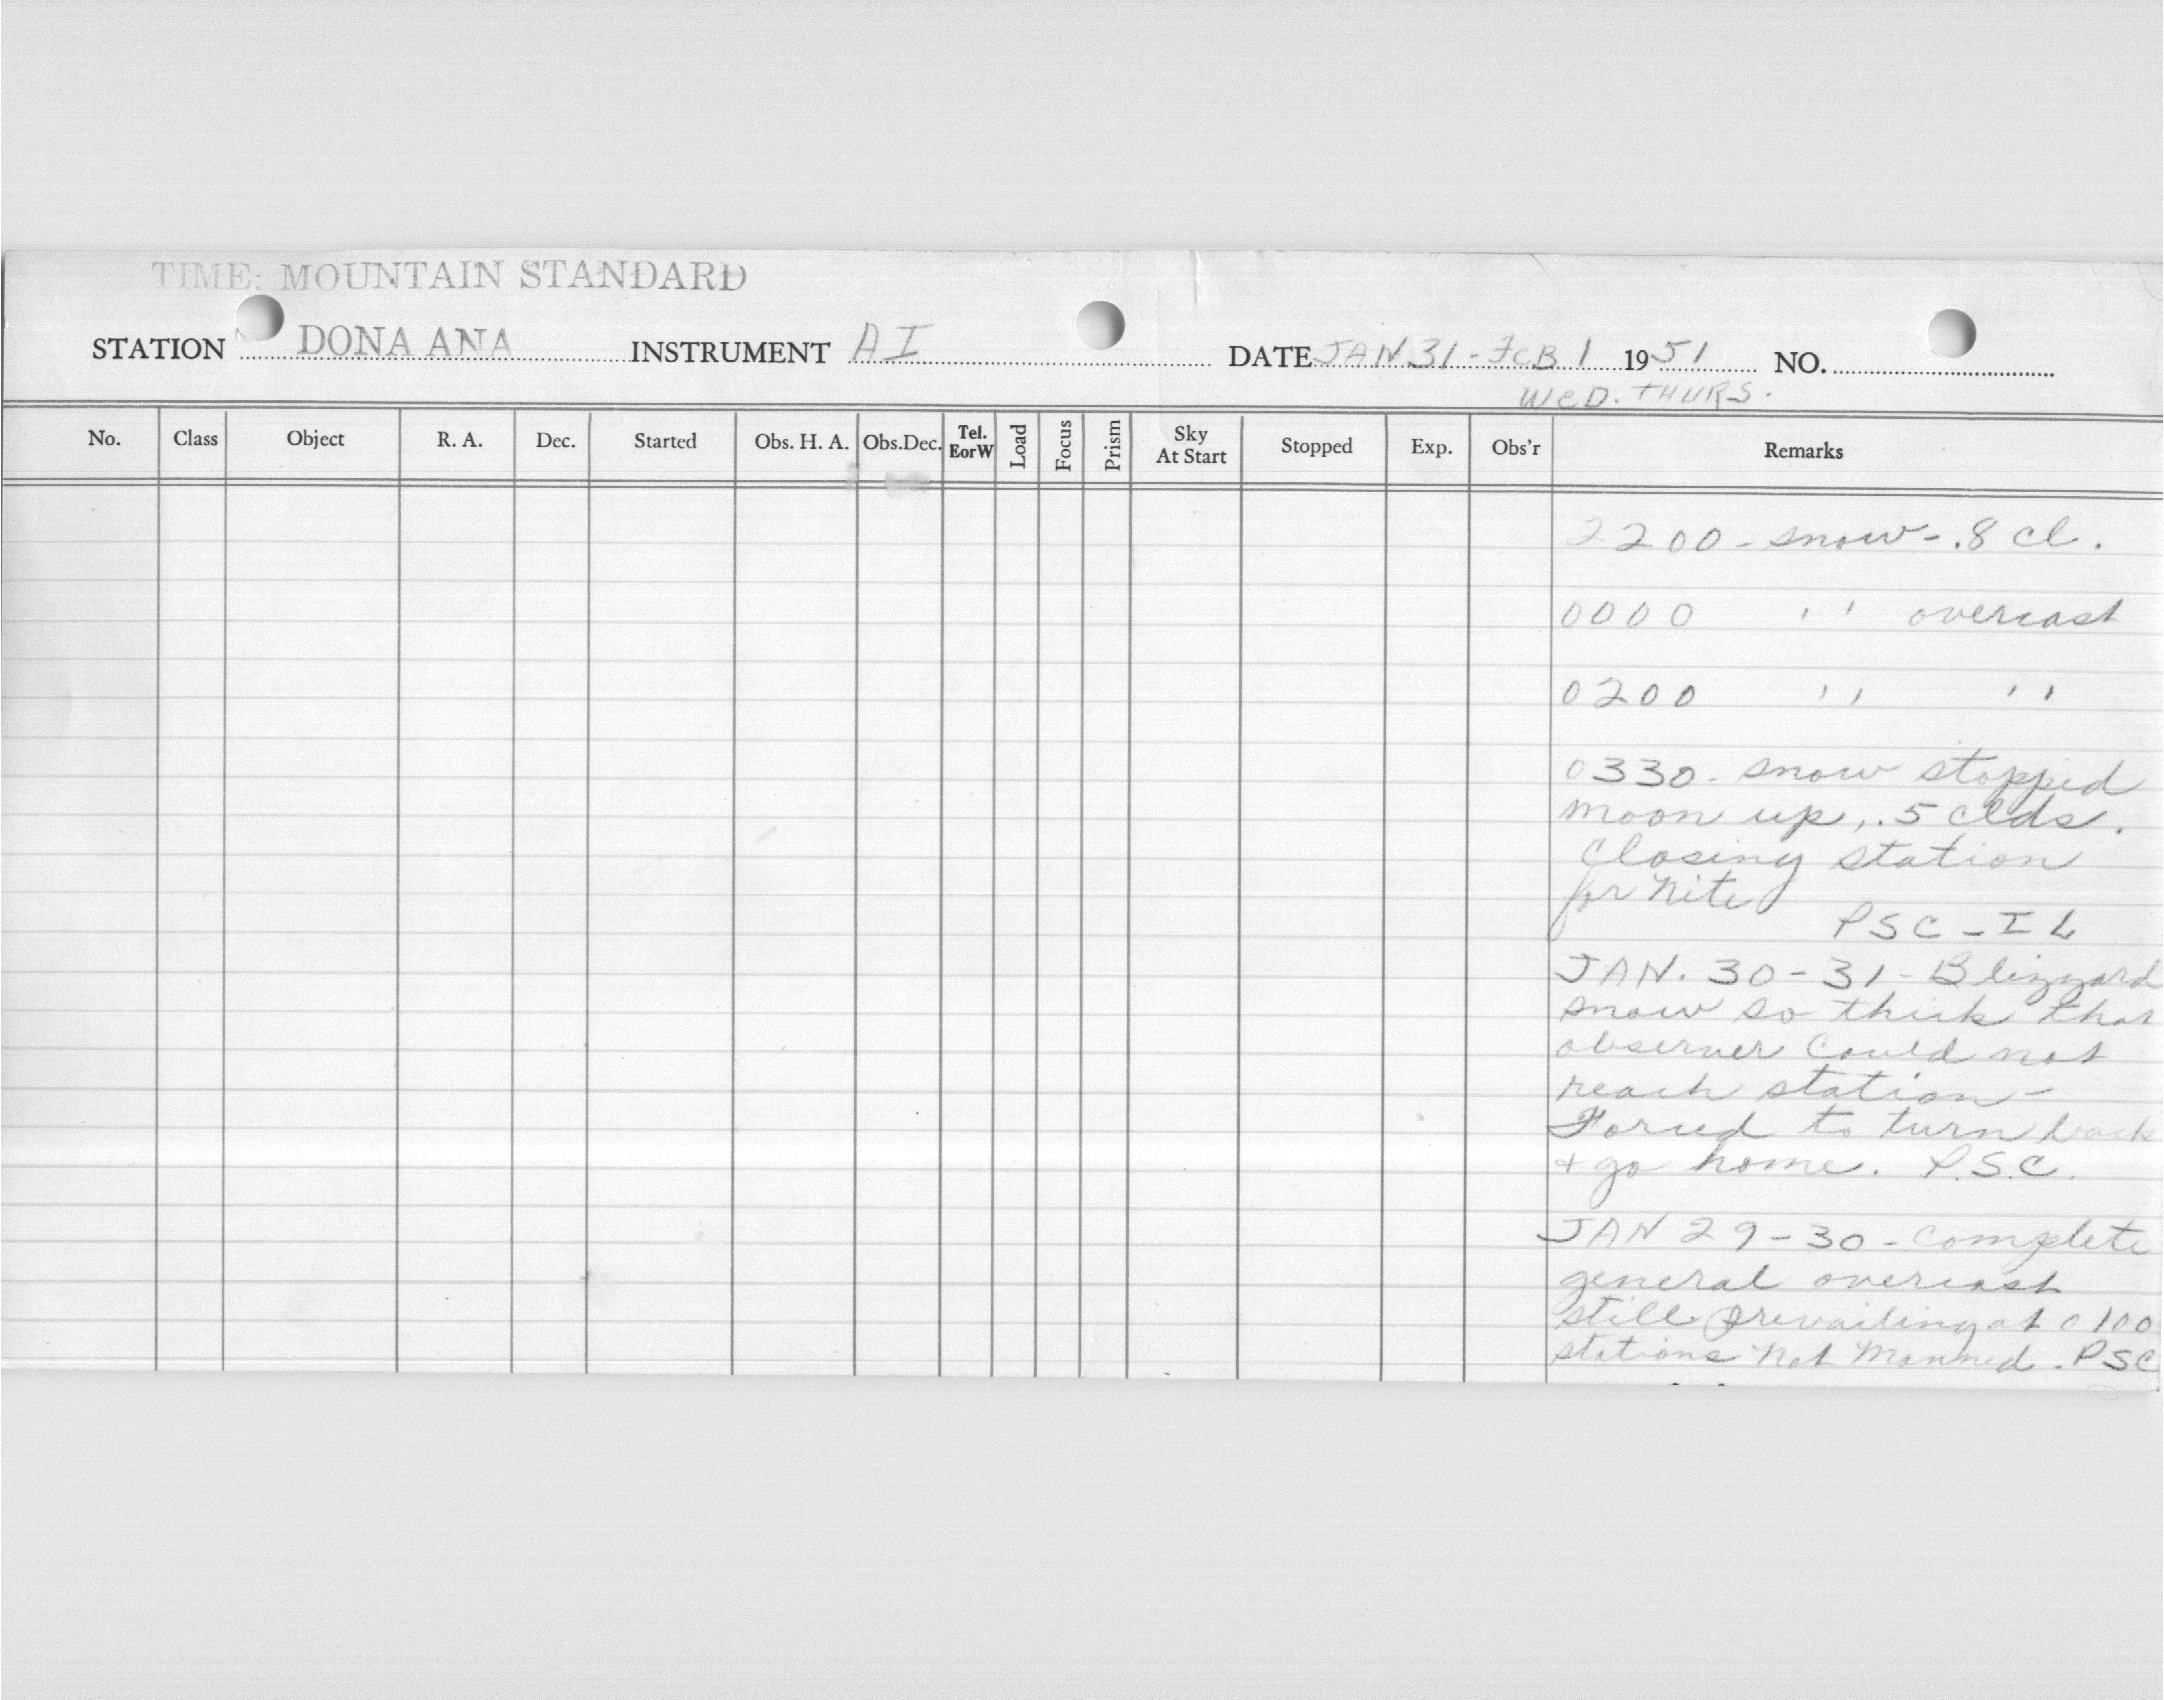 TIME: MOUNTAIN STANDARD
STATION DONA ANA INSTRUMENT AI DATE JAN 31 - FEB 1 1951 NO.
WED. THURS.
No. Class Object R. A. Dec. Started Obs. H. A. Obs.Dec. Tel. EorW Load Focus Prism Sky At Start Stopped Exp. Obs'r Remarks
2200 - snow - .8 cl.
0000 '' overcast
0200 '' ''
0330 - snow stopped
moon up, .5 clds.
Closing station
for nite
PSC - IL
JAN. 30 - 31 - Blizzard
snow so thick that
observer could not
reach station -
Forced to turn back
+ go home. P.S.C.
JAN 29 - 30 - complete
general overcast
still prevailing at 0100
stations not manned. PSC